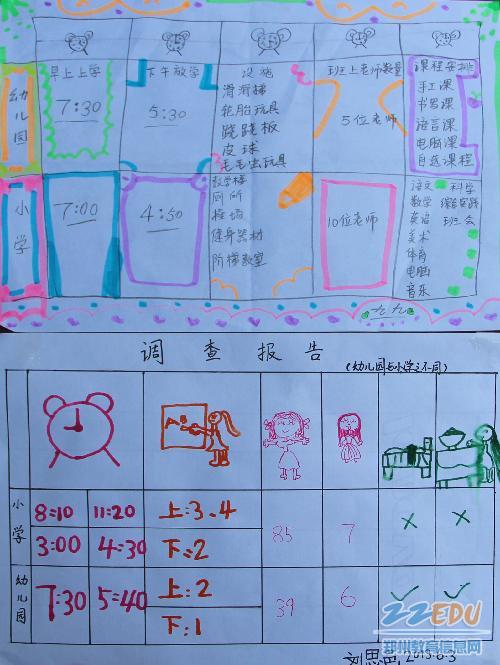 早上上学
下午放学
设施
班上老师数量
课程安排
幼儿园
7:30
5:30
滑滑梯
轮胎玩具
跷跷板
皮球
毛毛虫玩具
5位老师
手工课
书写课
语言课
电脑课
自选课程
小学
7:00
4:50
教学楼
厕所
操场
健身器材
阶梯教室
10位老师
语文 科学
数学
英语 班会
美术
体育
电脑
音乐
九九
调查报告
(幼儿园与小学之不同)
小学
8:10 11:20
3:00 4:30
上:3.4
下:2
85
7
× ×
幼儿园
7:30 5:40
上:2
下:1
39
6
22EDU
郑州教育信息网